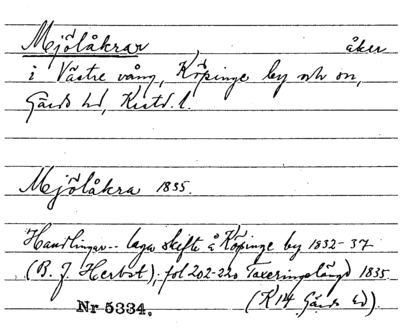 Mjölåkrar, åker
i Västre vång, Köpinge by och sn,
Gärds hd, Kristd. l.
Mjölåkra 1835.
Handlingar .. laga skifte å Köpinge by 1832-37
(B. J. Herbst); fol 202-220 Taxeringslängd 1835
Nr 5334. (K 14 Gärds hd).